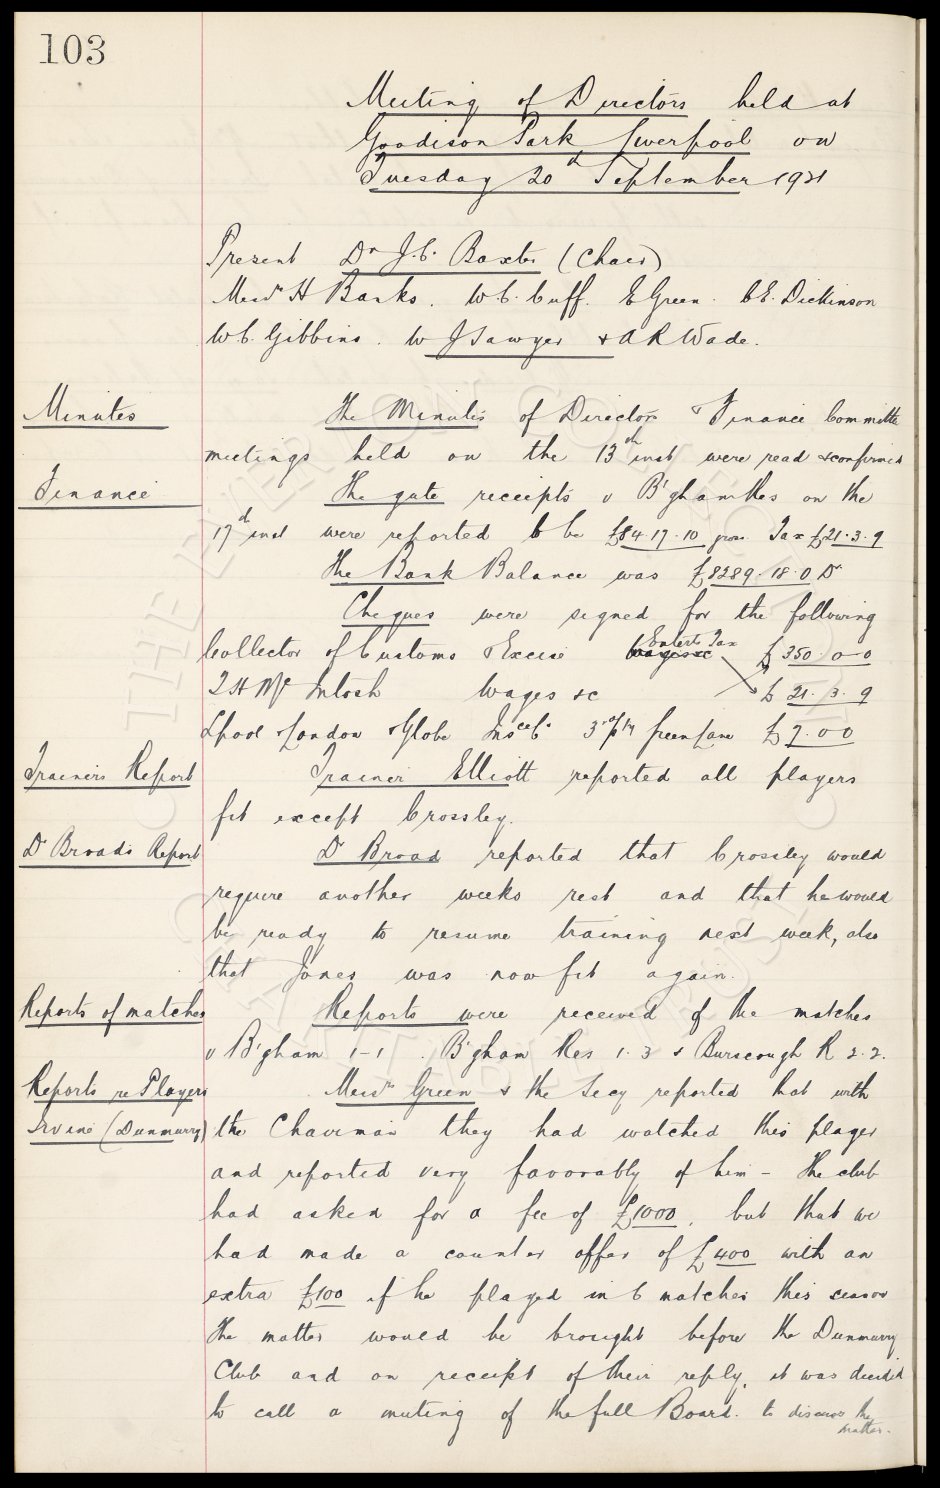 103
Meeting of Directors held at
Goodison Park Liverpool on
Tuesday 20th September 1921
Present Dr J.C. Baxter (Chair)
Messrs H Banks. W.C. Cuff. E Green. C E. Dickinson
W C. Gibbins. W J Sawyer & A R Wade.
Minutes
The Minutes of Directors & Finance Committee
meetings held on the 13th inst were read & confirmed
Finance
The gate receipts v B'gham Res on the
17th inst were reported to be £84.17.10 gross Tax £21.3.9
The Bank Balance was £8289.18.0 Dr
Cheques were signed for the following
Collector of Customs & Excise Enterts Tax £350.0-0
T H McIntosh Wages &c £21.3.9
Lpool London & Globe Insce Co 3 Green Lane £7.0 0
Trainers Report
Trainer Elliott reported all players
fit except Crossley.
Dr Broads Report
Dr Broad reported that Crossley would
require another weeks rest and that he would
be ready to resume training next week, also
that Jones was now fit again.
Reports of matches
Reports were received of the matches
v B'gham 1-1. B'gham Res 1.3 & Burscough R 2.2.
Reports re Players
Irvine (Dunmurry)
Messrs Green & the Secy reported that with
the Chairman they had watched this player
and reported very favorably of him - The club
had asked for a fee of £1000, but that we
had made a counter offer of £400 with an
extra £100 if he played in 6 matches this season
The matter would be brought before the Dunmurry
Club and on receipt of their reply, it was decided
to call a meeting of the full Board. to discuss the
matter.
THE EVERTON COLLECTION
CHARITABLE TRUST